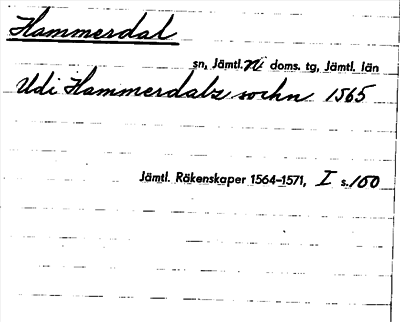 Hammerdal
sn, Jämtl. N doms. tg, Jämtl. län
Udi Hammerdalz sochn 1565
Jämtl. Räkenskaper 1564–1571, I s. 150